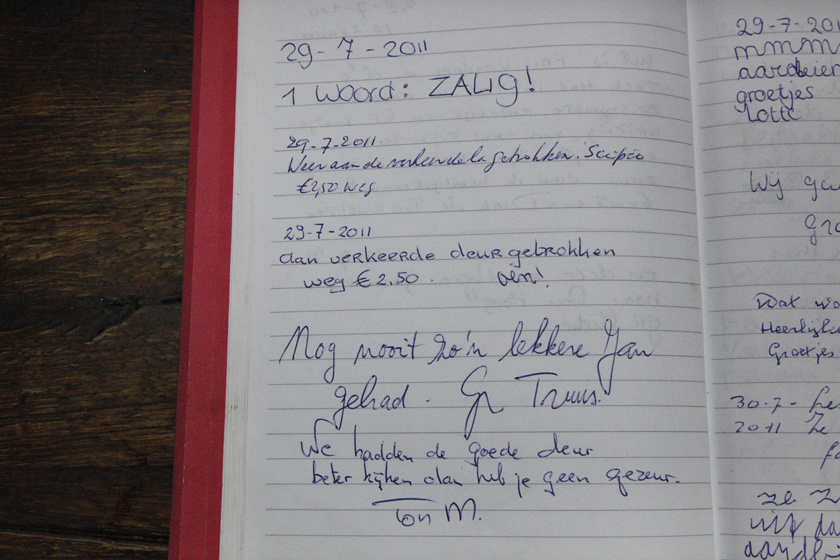 29-7-2011
1 woord: ZALIG!
29-7-2011.
Weer aan de verkeerde la getrokken.
€2,50 weg
29-7-2011
aan verkeerde deur getrokken
weg € 2,50.
Nog nooit zo'n lekkere Jan
gehad. Gr Truus.
We hadden de goede deur
beter kijken dan heb je geen gezeur.
Ton M.
29-7-201
mmmm
aardbeien
groetjes
Lotte
Wij
Gro
Wat wa
Heerlijk
Groetjes
30-7-
2011 Ze
ze z
uit